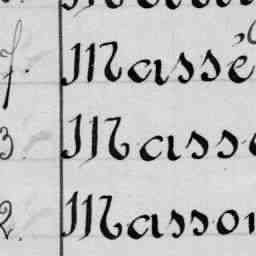 7. Massé
3. Masso
2. Masson